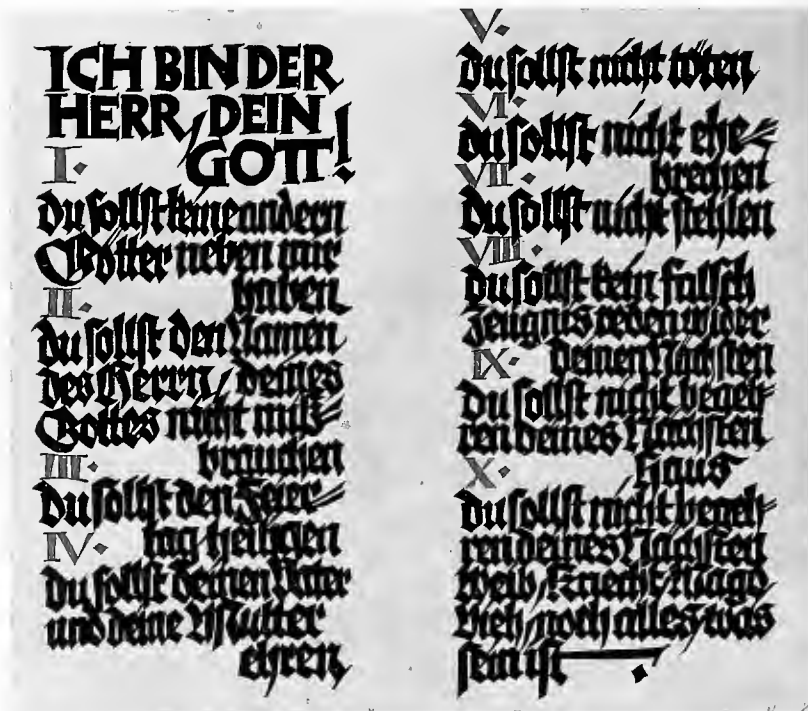 ICH BIN DER
HERR, DEIN
GOTT!
I.
Du sollst keine andern
Götter neben mir
haben
II.
Du sollst den Namen
des Herrn, deines
Gottes nicht miß-
brauchen
III.
Du sollst den Feier-
tag heiligen
IV.
Du sollst deinen Vater
und deine Mutter
ehren
V.
Du sollst nicht töten
VI.
Du sollst nicht ehe-
brechen
VII.
Du sollst nicht stehlen
VIII.
Du sollst kein falsch
Zeugnis reden wider
deinen Nächsten
IX.
Du sollst nicht begeh-
ren deines Nächsten
Haus
X.
Du sollst nicht begeh-
ren deines Nächsten
Weib, Knecht, Magd,
Vieh, noch alles was
sein ist